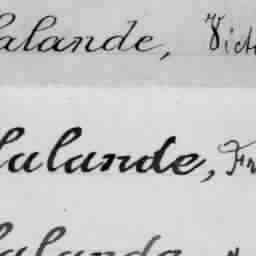 lalande, Victo
lalande, Fr
lalande